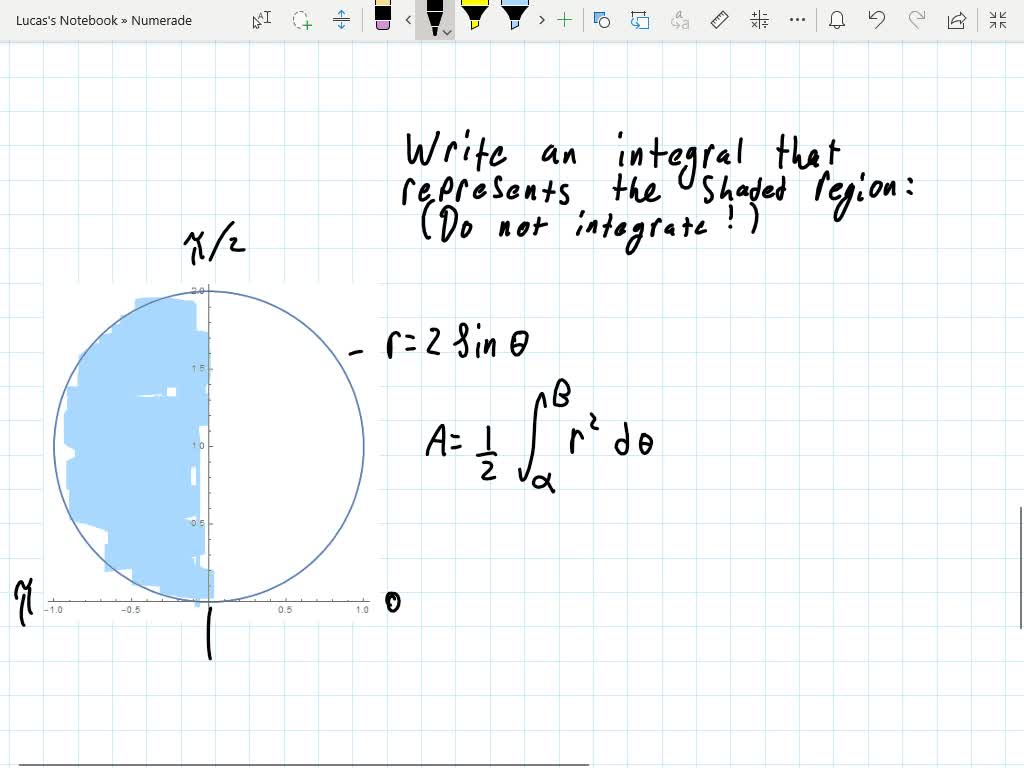 Lucas's Notebook » Numerade
Write an integral that
represents the shaded region:
(Do not integrate!)
π/2
2.0
r=2 sin θ
1.5
A= 1/2 ∫ α β r² dθ
1.0
0.5
π
-1.0 -0.5 0.5 1.0
0